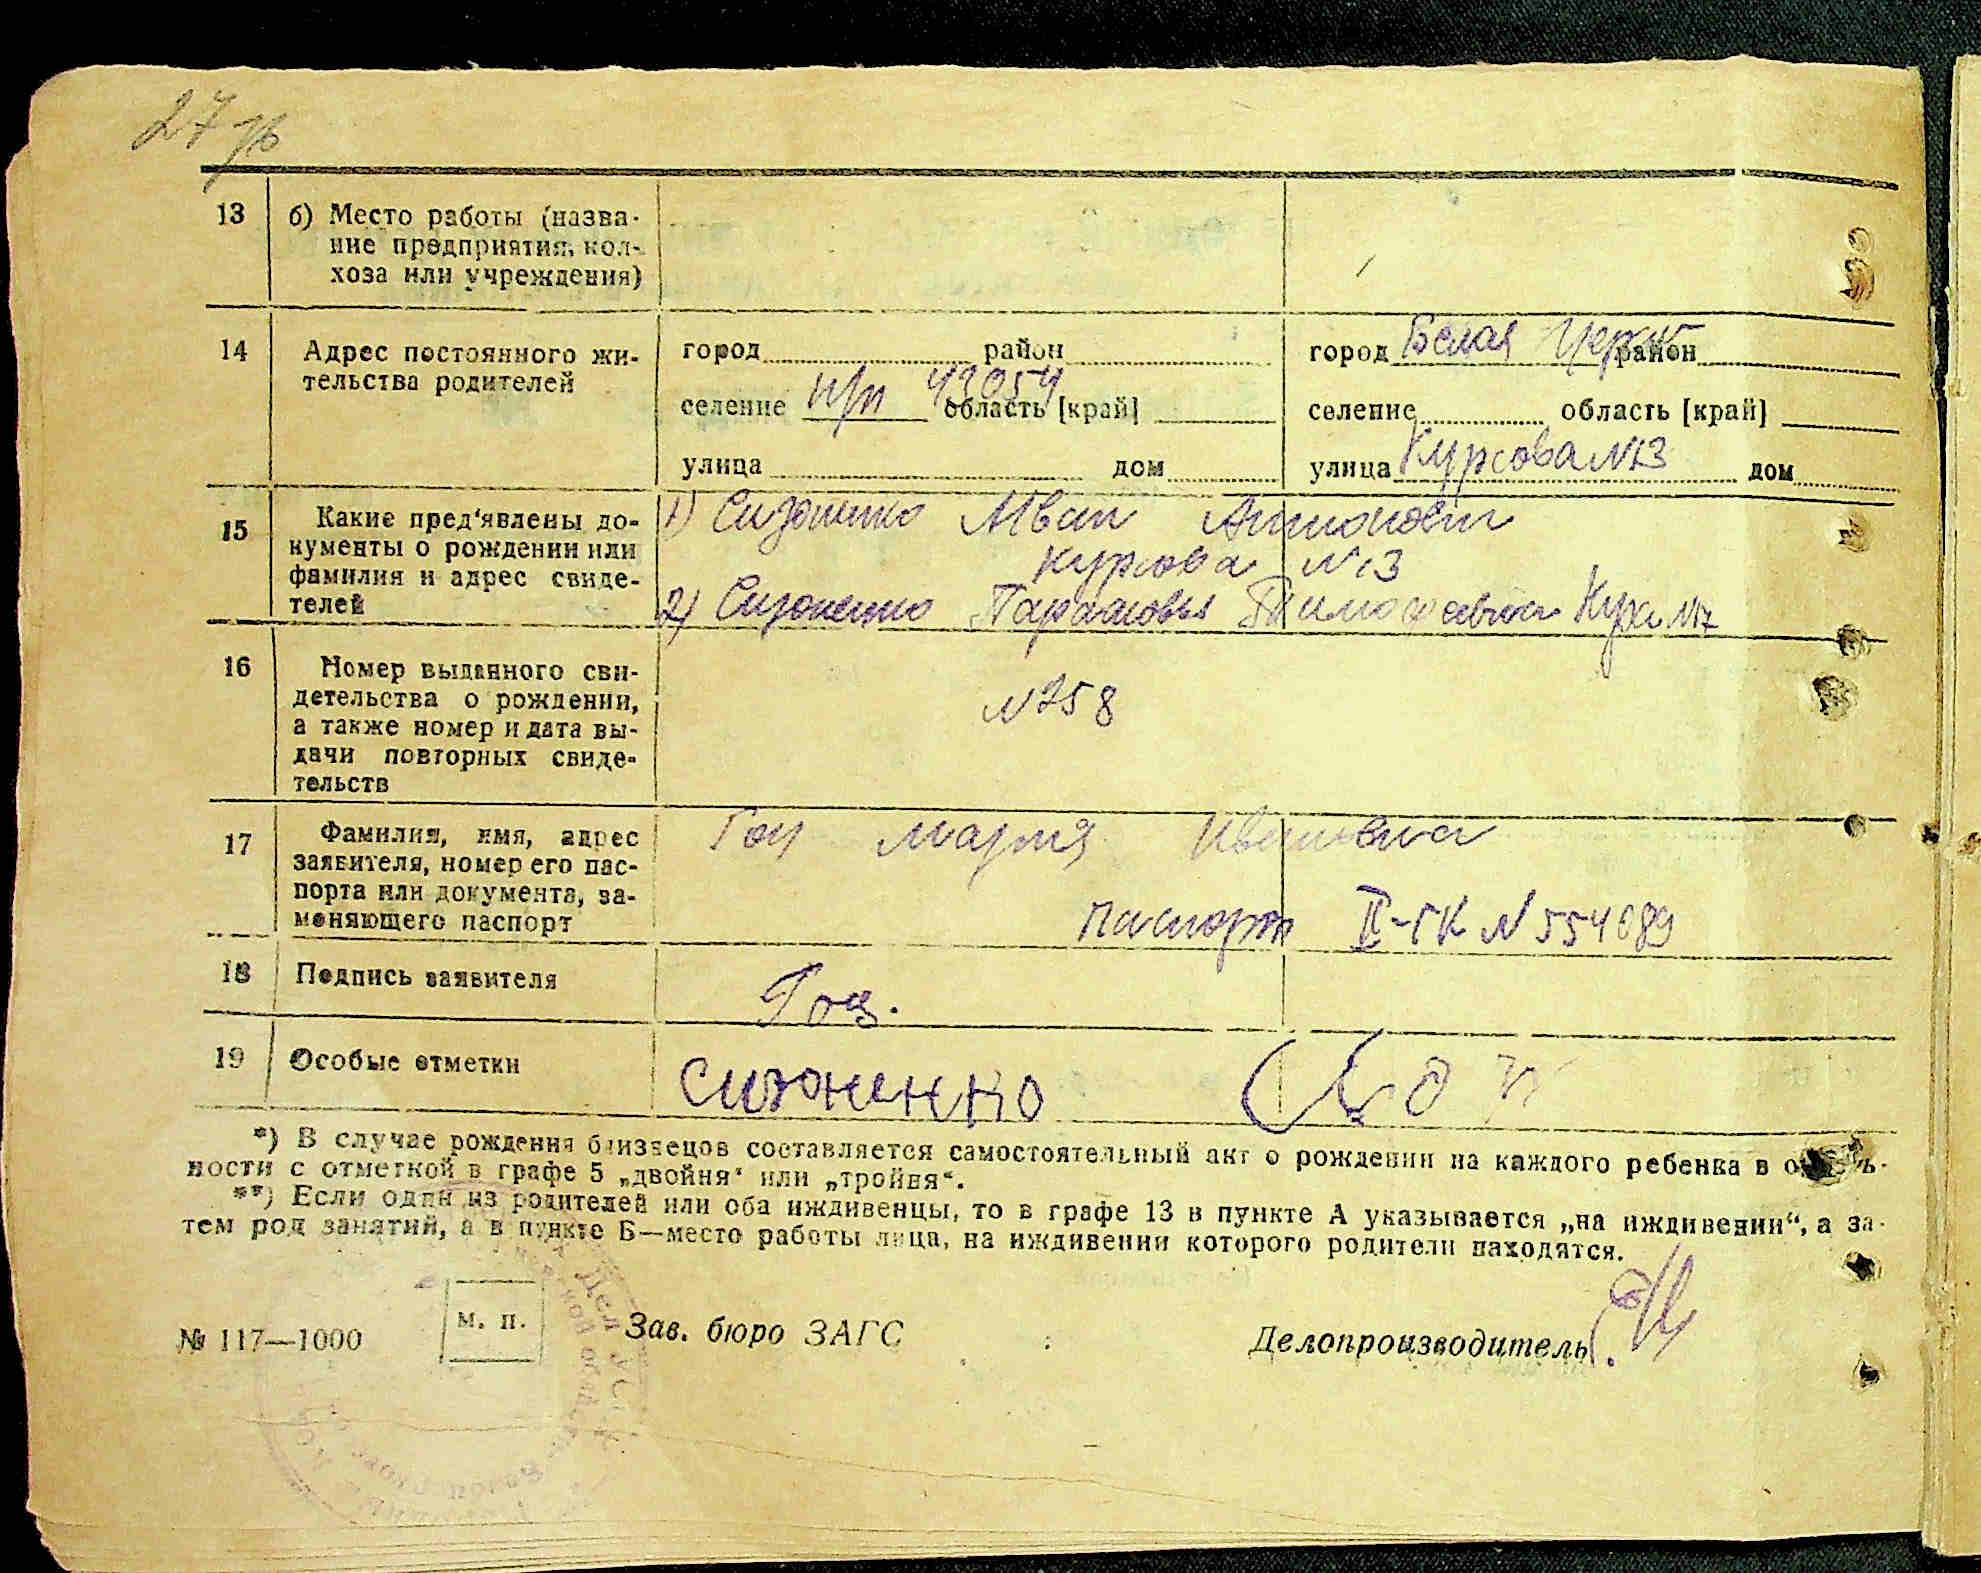 27
13 б) Место работы (назва-
ние предприятия, кол-
хоза или учреждения)
14 Адрес постоянного жи-
тельства родителей
город район
селение п/п 43054 область [край]
улица дом
город Белая Церковь район
селение область [край]
улица Курсова №13 дом
15 Какие пред'явлены до-
кументы о рождении или
фамилия и адрес свиде-
телей
1) Сизоненко Иван Антонович
Курсова №13
2) Сизоненко Тимофеевна Курс. №17
16 Номер выданного сви-
детельства о рождении,
а также номер и дата вы-
дачи повторных свиде-
тельств
№258
17 Фамилия, имя, адрес
заявителя, номер его пас-
порта или документа, за-
меняющего паспорт
Гоц Мария Ивановна
Паспорт II-ГК № 554089
18 Подпись заявителя
Гоц.
19 Особые отметки
Сизоненко
*) В случае рождения близнецов составляется самостоятельный акт о рождении на каждого ребенка в отдель-
ности с отметкой в графе 5 „двойня“ или „тройня“.
**) Если один из родителей или оба иждивенцы, то в графе 13 в пункте А указывается „на иждивении“, а за-
тем род занятий, а в пункте Б—место работы лица, на иждивении которого родители находятся.
№ 117—1000
м. п.
Зав. бюро ЗАГС
Делопроизводитель